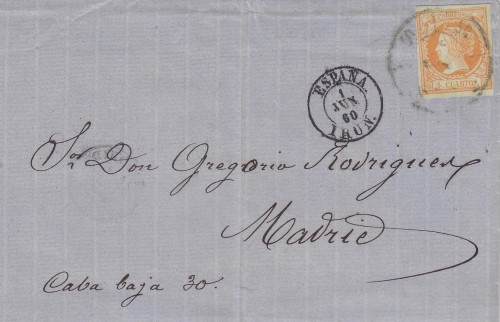 4 CUARTOS
ESPAÑA.
1
JUN
60
IRUN.
Sor Don Gregorio Rodriguez
Madrid
Caba baja 30.